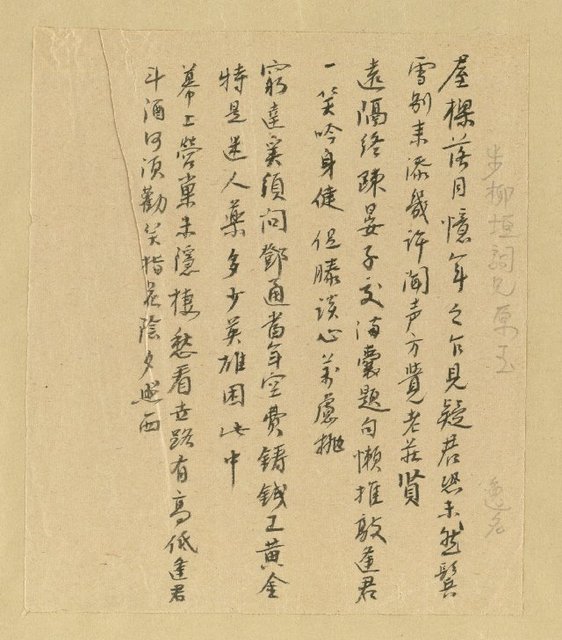 步柳垣詞兄原玉
逸名
屋樑落月憶年年乍見疑君恐未然鬢
雪別來添幾許聞声方覺老莊賢
遠隔終疎晏子交滿囊題句懶推敲逢君
一笑吟身健促膝談心万慮拋
窮達奚須問鄧通當年空費鑄錢工黃金
特是迷人藥多少英雄困此中
幕上營巢未隱棲愁看世路有高低逢君
斗酒何須勸笑指花陰夕照西